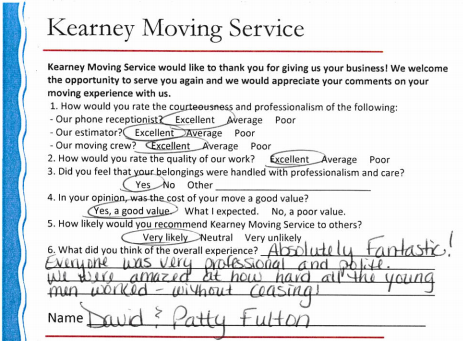 Kearney Moving Service
Kearney Moving Service would like to thank you for giving us your business! We welcome
the opportunity to serve you again and we would appreciate your comments on your
moving experience with us.
1. How would you rate the courteousness and professionalism of the following:
- Our phone receptionist? Excellent Average Poor
- Our estimator? Excellent Average Poor
- Our moving crew? Excellent Average Poor
2. How would you rate the quality of our work? Excellent Average Poor
3. Did you feel that your belongings were handled with professionalism and care?
Yes No Other
4. In your opinion, was the cost of your move a good value?
Yes, a good value. What I expected. No, a poor value.
5. How likely would you recommend Kearney Moving Service to others?
Very likely Neutral Very unlikely
6. What did you think of the overall experience? Absolutely Fantastic!
Everyone was very professional and polite.
We were amazed at how hard all the young
men worked - without ceasing!
Name David & Patty Fulton